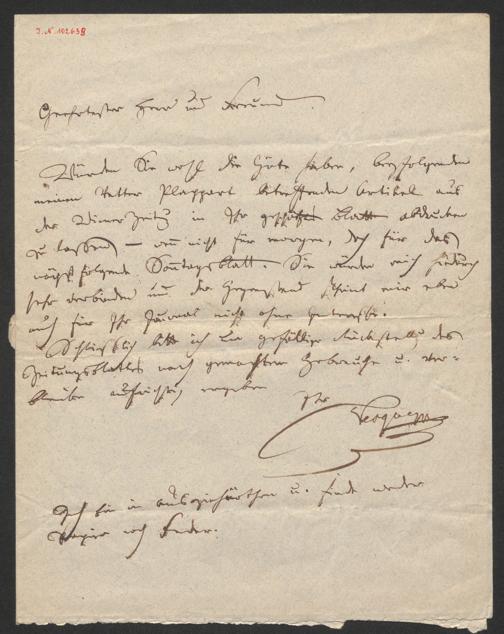 J.N. 102638
Geehrtester Herr und Freund.
Würden Sie wohl die Güte haben, beyfolgenden
meinen Vetter Plappart betreffenden Artikel aus
der Wiener Zeitg in Ihr geschätztes Blatt abdrucken
zu lassen – wenn nicht für morgen, doch für das
nächst folgende Sontagsblatt. Sie würden mich hiedurch
sehr verbinden und der Gegenstand scheint mir eben
auch für Ihr Journal nicht ohne Interesse.
Schließlich bitte ich um gefällige Rückstellg des
Zeitungsblattes nach gemachtem Gebrauche u. ver=
bleibe aufrichtig ergeben
Ihr
Ich bin im Ausziehen u. finde weder
Papier noch Feder.